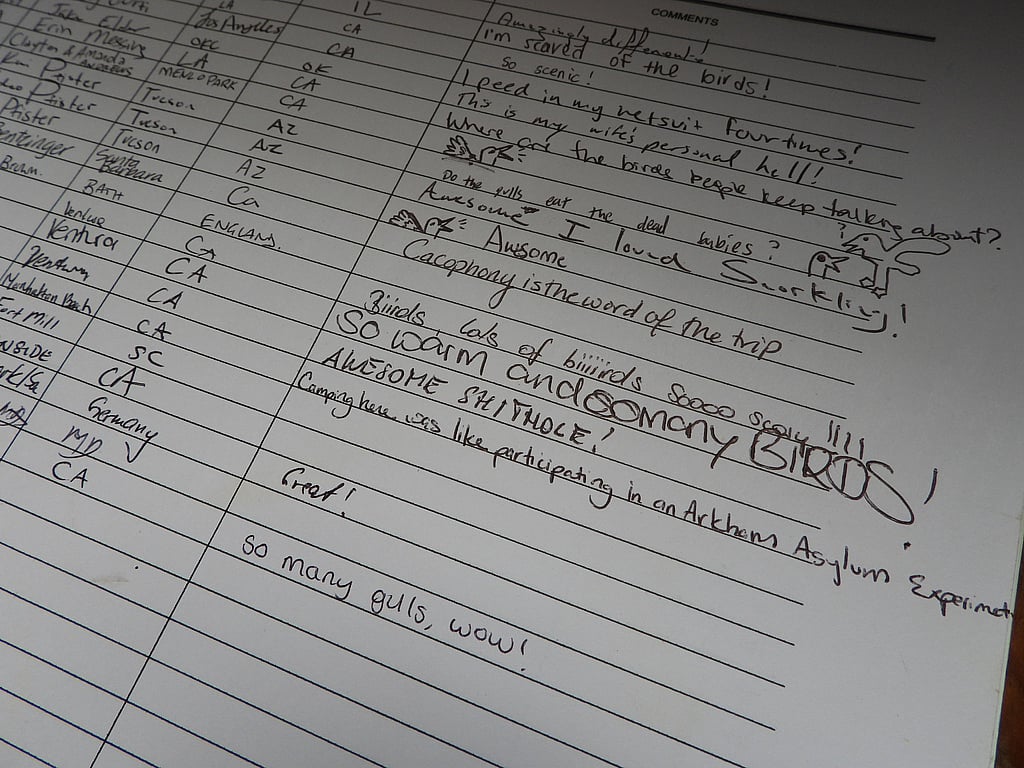 COMMENTS
LA IL Amazingly different!
Los Angeles CA I'm scared of the birds!
Erin OKC CA so scenic!
Clayton & Amanda LA OK I peed in my wetsuit four times!
Kim MENLO PARK CA This is my wife's personal hell!
Pfister Tucson CA Where are the birds people keep talking about?
Pfister Tucson AZ
Tucson AZ Do the gulls eat the dead babies?
Santa Barbara AZ Awesome I loved Snorkling!
Brown BATH Ca Awsome
Ventura ENGLAND. Cacophony is the word of the trip
Ventura CA
Ventura CA Biiirds, lots of biiiiirds Soooo scary !!!!
Manhattan Beach CA SO warm and so many BIRDS!
Fort Mill CA AWESOME SHITHOLE!
SC Camping here was like participating in an Arkham Asylum Experiment
CA
Germany Great!
MD
CA so many gulls, wow!